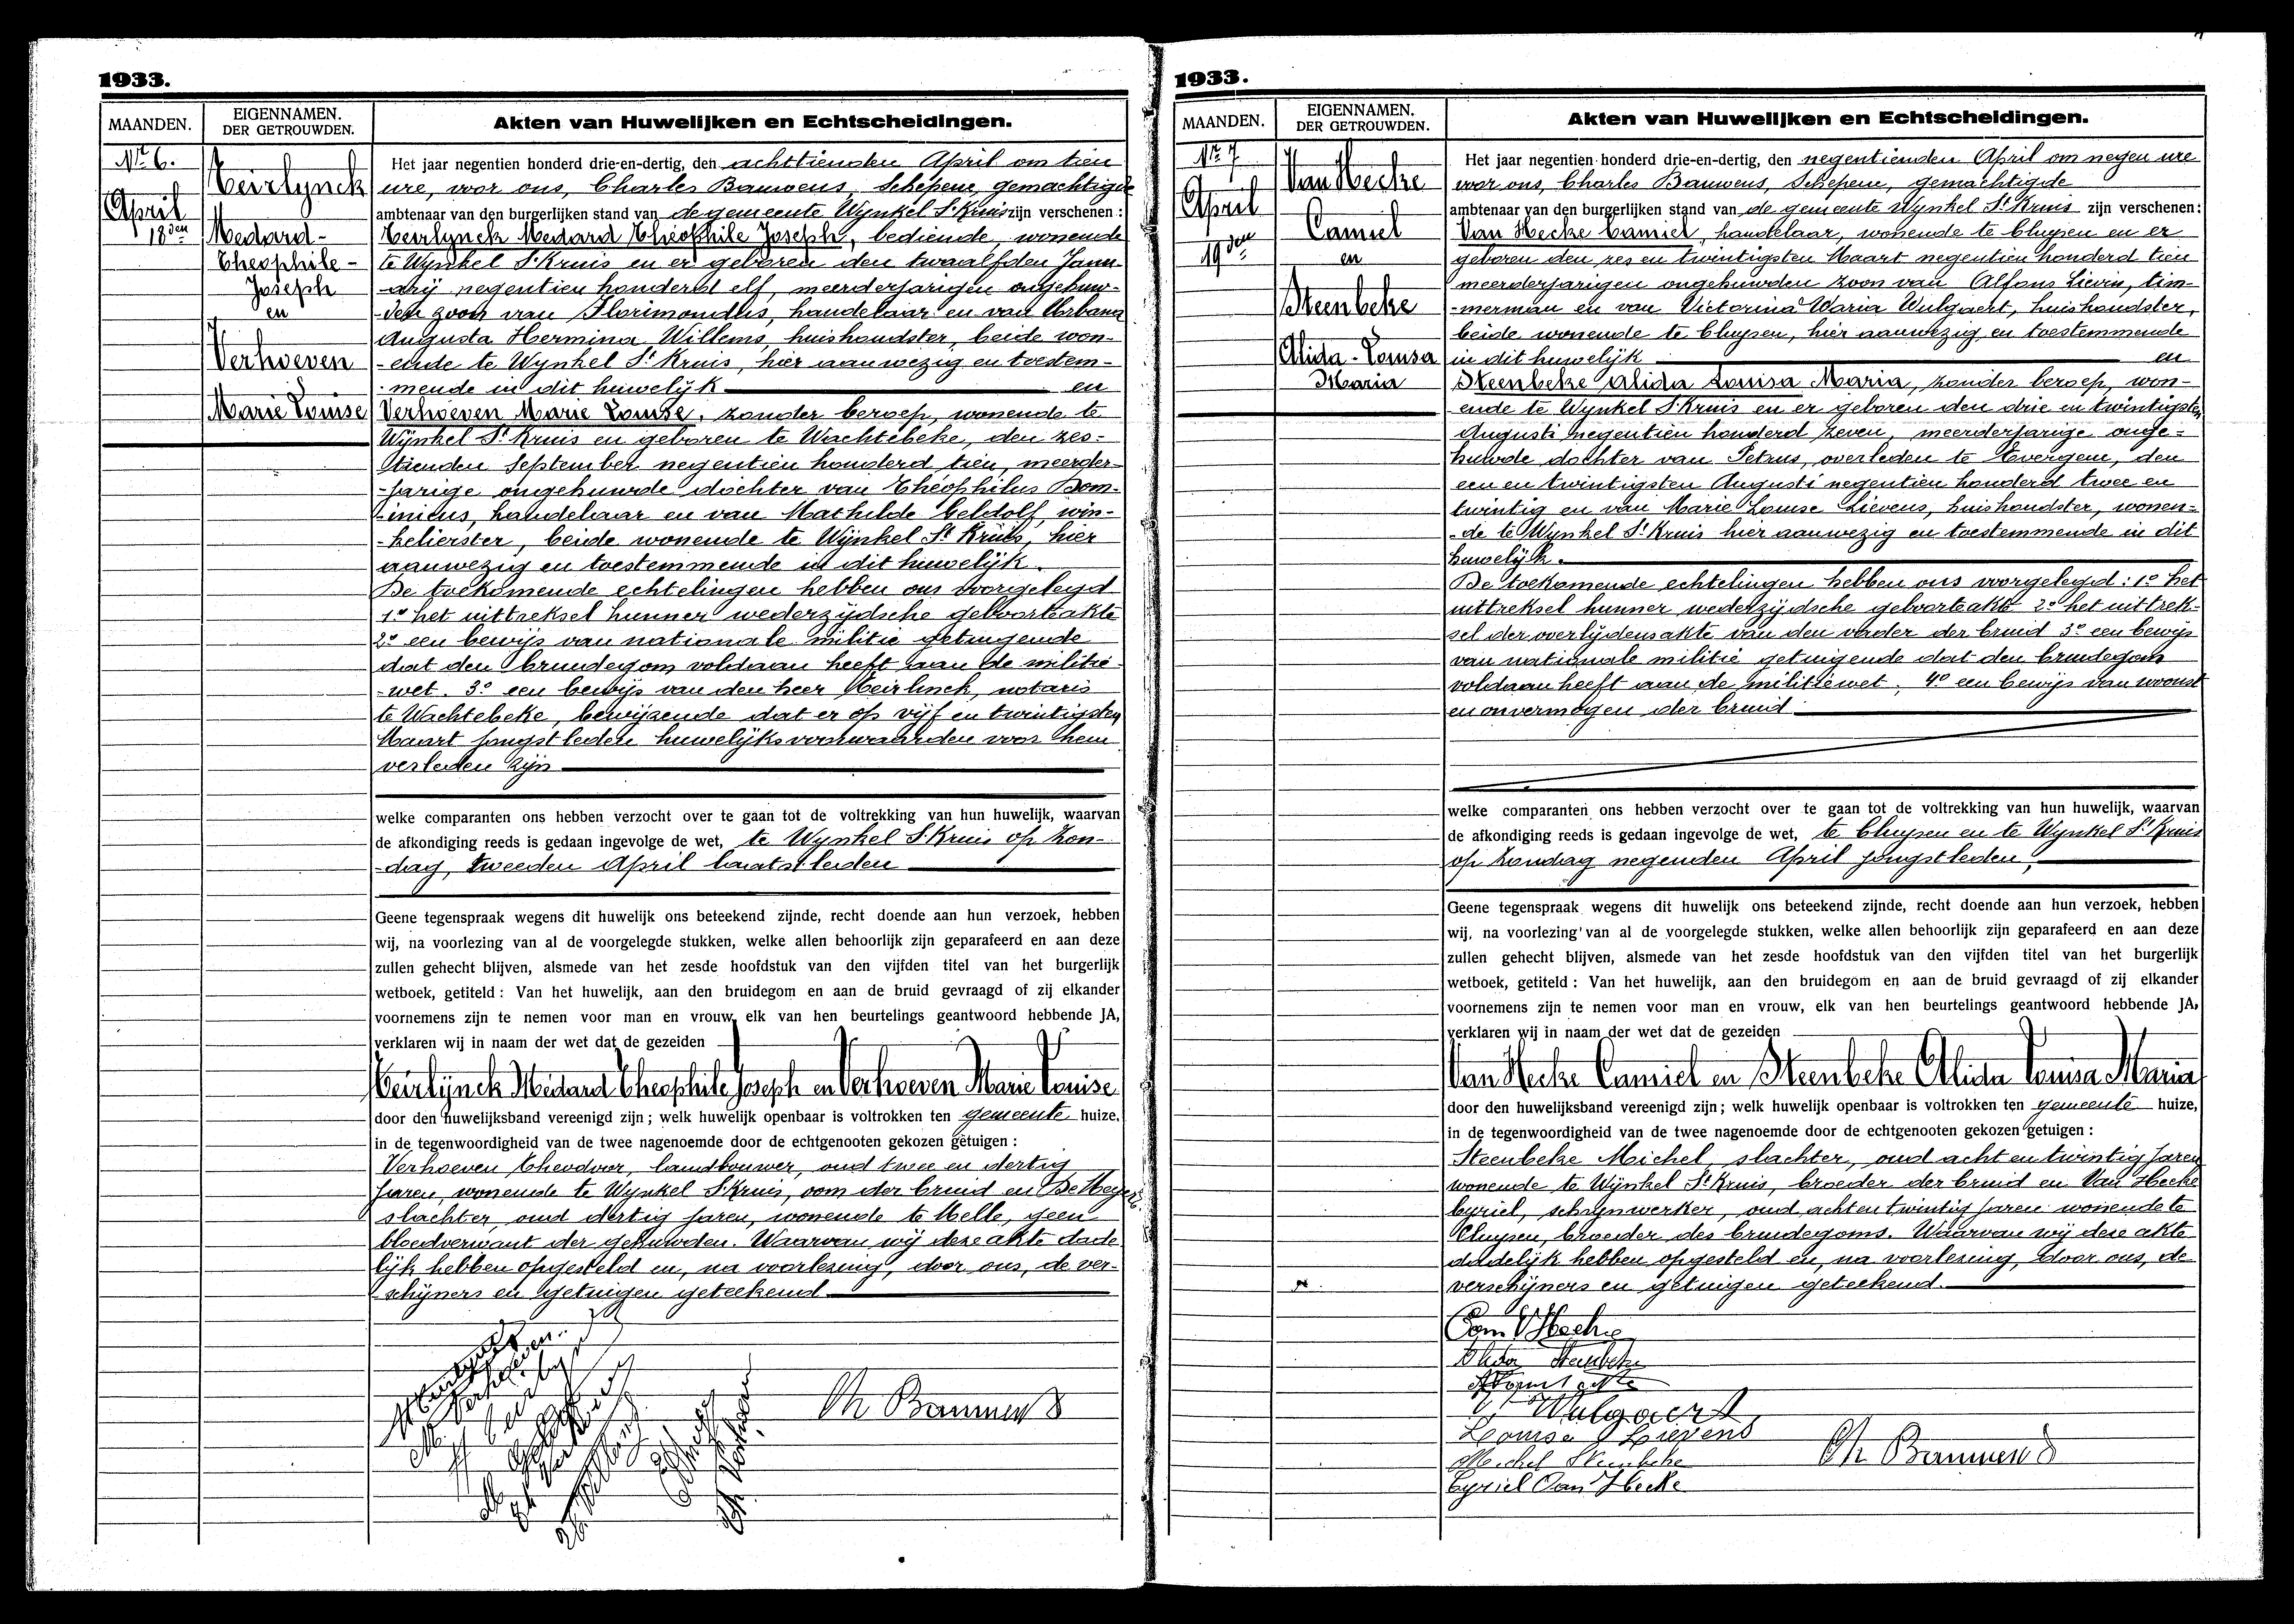 1933.
MAANDEN.
EIGENNAMEN.
DER GETROUWDEN.
Akten van Huwelijken en Echtscheidingen.
Nr 6.
April
18den
Teirlynck
Medard-
Theophile-
Joseph
en
Verhoeven
Marie Louise
Het jaar negentien honderd drie-en-dertig, den achttienden April om tien
ure, voor ons, Charles Bauwens, Schepene, gemachtigde
ambtenaar van den burgerlijken stand van de gemeente Wynkel St Kruis zijn verschenen :
Teirlynck Medard Theophile Joseph, bediende, wonende
te Wynkel St Kruis en er geboren den twaalfden Janu-
-arij negentien honderd elf, meerderjarigen ongehuw-
-den zoon van Florimondus, handelaar en van Urbana
Augusta Hermina Willems, huishoudster, beide won-
-ende te Wynkel St Kruis, hier aanwezig en toestem-
-mende in dit huwelijk en
Verhoeven Marie Louise, zonder beroep, wonende te
Wynkel St Kruis en geboren te Wachtebeke, den zes-
tienden September negentien honderd tien, meerder-
-jarige ongehuwde dochter van Théophilus Dom-
-inicus, handelaar en van Mathilde Geldolf, win-
-kelierster, beide wonende te Wynkel St Kruis, hier
aanwezig en toestemmende in dit huwelijk.
De toekomende echtelingen hebben ons voorgelegd
1º het uittreksel hunner wederzijdsche geboorteakte
2º een bewijs van nationale militie getuigende
dat den bruidegom voldaan heeft aan de militie-
-wet. 3º een bewijs van den heer Teirlinck, notaris
te Wachtebeke, bewijzende dat er op vijf en twintigsten
Maart jongstleden huwelijksvoorwaarden voor hem
verleden zijn
welke comparanten ons hebben verzocht over te gaan tot de voltrekking van hun huwelijk, waarvan
de afkondiging reeds is gedaan ingevolge de wet, te Wynkel St Kruis op zon-
-dag, tweeden April laatstleden
Geene tegenspraak wegens dit huwelijk ons beteekend zijnde, recht doende aan hun verzoek, hebben
wij, na voorlezing van al de voorgelegde stukken, welke allen behoorlijk zijn geparafeerd en aan deze
zullen gehecht blijven, alsmede van het zesde hoofdstuk van den vijfden titel van het burgerlijk
wetboek, getiteld : Van het huwelijk, aan den bruidegom en aan de bruid gevraagd of zij elkander
voornemens zijn te nemen voor man en vrouw, elk van hen beurtelings geantwoord hebbende JA,
verklaren wij in naam der wet dat de gezeiden
Teirlijnck Medard Theophile Joseph en Verhoeven Marie Louise
door den huwelijksband vereenigd zijn ; welk huwelijk openbaar is voltrokken ten gemeente huize,
in de tegenwoordigheid van de twee nagenoemde door de echtgenooten gekozen getuigen :
Verhoeven Theodoor, landbouwer, oud twee en dertig
jaren, wonende te Wynkel St Kruis, oom der bruid en De Meyer
slachter, oud dertig jaren, wonende te Melle, geen
bloedverwant der gehuwden. Waarvan wij deze akte dade
lijk hebben opgesteld en, na voorlezing, door ons, de ver-
schijners en getuigen geteekend
Ch Bauwens
1933.
MAANDEN.
EIGENNAMEN.
DER GETROUWDEN.
Akten van Huwelijken en Echtscheidingen.
Nr 7
April
19den
Van Hecke
Camiel
en
Steenbeke
Alida-Louisa
Maria
Het jaar negentien honderd drie-en-dertig, den negentienden April om negen ure
voor ons, Charles Bauwens, Schepene, gemachtigde
ambtenaar van den burgerlijken stand van de gemeente Wynkel St Kruis zijn verschenen :
Van Hecke Camiel, handelaar, wonende te Cluysen en er
geboren den zes en twintigsten Maart negentien honderd tien
meerderjarigen ongehuwden zoon van Alfons Lievin, tim-
-merman en van Victorina Maria Wulgaert, huishoudster,
beide wonende te Cluysen, hier aanwezig en toestemmende
in dit huwelijk en
Steenbeke Alida Louisa Maria, zonder beroep, won-
ende te Wynkel St Kruis en er geboren den drie en twintigsten
Augusti negentien honderd zeven, meerderjarige onge-
huwde dochter van Petrus, overleden te Evergem, den
een en twintigsten Augusti negentien honderd twee en
twintig en van Marie Louise Lievens, huishoudster, wonen-
-de te Wynkel St Kruis hier aanwezig en toestemmende in dit
huwelijk.
De toekomende echtelingen hebben ons voorgelegd : 1º het
uittreksel hunner wederzijdsche geboorteakte 2º het uittrek-
sel der overlijdensakte van den vader der bruid 3º een bewijs
van nationale militie getuigende dat den bruidegom
voldaan heeft aan de militiewet. 4º een bewijs van woonst
en onvermogen der bruid.
welke comparanten ons hebben verzocht over te gaan tot de voltrekking van hun huwelijk, waarvan
de afkondiging reeds is gedaan ingevolge de wet, te Cluysen en te Wynkel St Kruis
op Zondag negenden April jongstleden.
Geene tegenspraak wegens dit huwelijk ons beteekend zijnde, recht doende aan hun verzoek, hebben
wij, na voorlezing van al de voorgelegde stukken, welke allen behoorlijk zijn geparafeerd en aan deze
zullen gehecht blijven, alsmede van het zesde hoofdstuk van den vijfden titel van het burgerlijk
wetboek, getiteld : Van het huwelijk, aan den bruidegom en aan de bruid gevraagd of zij elkander
voornemens zijn te nemen voor man en vrouw, elk van hen beurtelings geantwoord hebbende JA,
verklaren wij in naam der wet dat de gezeiden
Van Hecke Camiel en Steenbeke Alida Louisa Maria
door den huwelijksband vereenigd zijn ; welk huwelijk openbaar is voltrokken ten gemeente huize,
in de tegenwoordigheid van de twee nagenoemde door de echtgenooten gekozen getuigen :
Steenbeke Michel, slachter, oud acht en twintig jaren
wonende te Wynkel St Kruis, broeder der bruid en Van Hecke
Cyriel, schrijnwerker, oud acht en twintig jaren wonende te
Cluysen, broeder des bruidegoms. Waarvan wij deze akte
dadelijk hebben opgesteld en, na voorlezing, door ons, de
verschijners en getuigen geteekend.
Cam VHecke
Alida Steenbeke
Wulgaert
Louise Lievens
Michel Steenbeke
Cyriel Van Hecke
Ch Bauwens